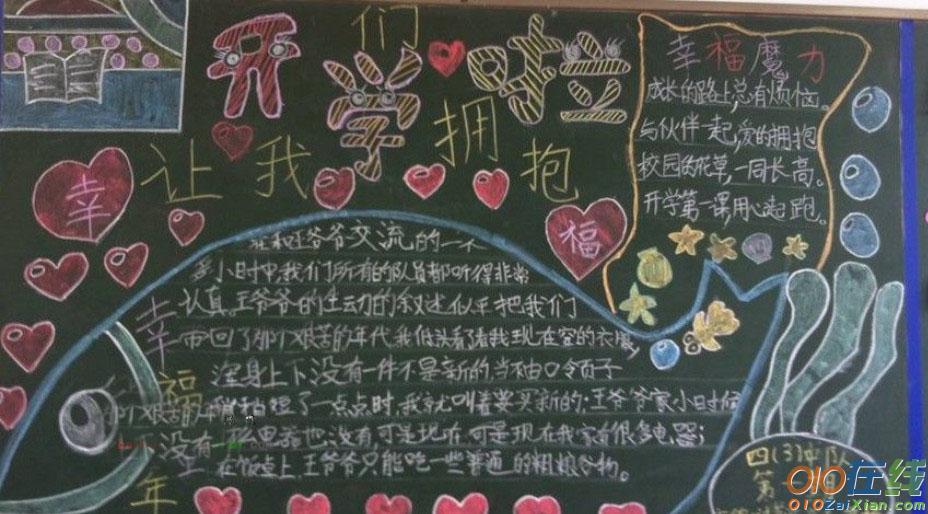 开学啦
让我们拥抱
幸福
幸福魔力
成长的路上,总有烦恼。
与伙伴一起,爱的拥抱
校园的花草,一同长高。
开学第一课用心起跑。
在和王爷爷交流的一个
多小时中,我们所有的队员都听得非常
认真。王爷爷的生动的叙述似乎把我们
带回了那个艰苦的年代,我低头看了看我现在穿的衣服,
浑身上下没有一件不是新的,当袖口令页子
短了一点点时,我就叫着要买新的;王爷爷家小时候
没有一电器也没有,可是现在,可是现在我家有很多电器;
在饭桌上,王爷爷只能吃一些普通的粗粮谷物。
幸福
年
四(3)中队
第
010在线
010ZaiXian.com